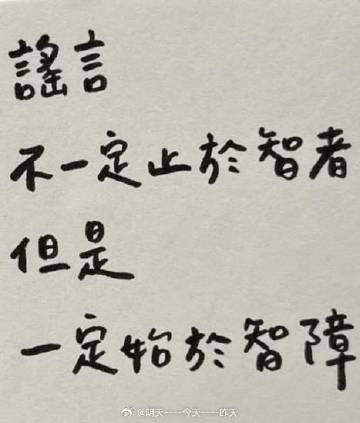 謠言
不一定止於智者
但是
一定始於智障
@阴天一一今天一一昨天